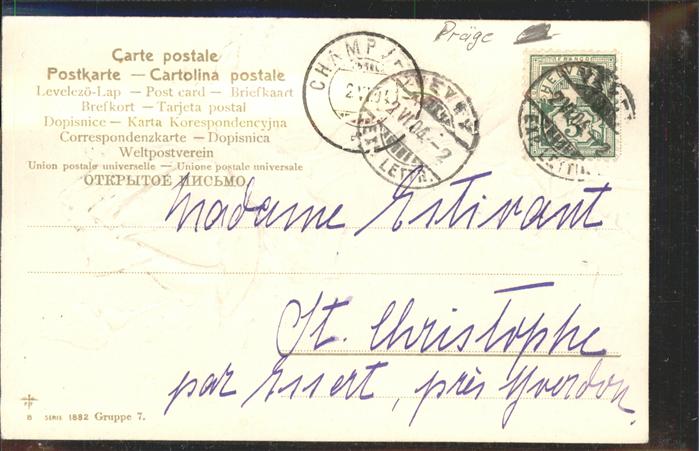 Präge
Carte postale
Postkarte — Cartolina postale
Levelező-Lap — Post card — Briefkaart
Brefkort — Tarjeta postal
Dopisnice — Karta Korespondencyjna
Correspondenzkarte — Dopisnica
Weltpostverein
Union postale universelle — Unione postale universale
ОТКРЫТОЕ ПИСЬМО
CHAMP
2.VI.04
VEVEY
2.VI.04.-2
LETTR.
HELVETIA
FRANCO
5
VEVEY
2.VI.04.-2
Madame Estivant
St. Christophe
par Essert, près Yverdon.
8 SERIE 1882 Gruppe 7.